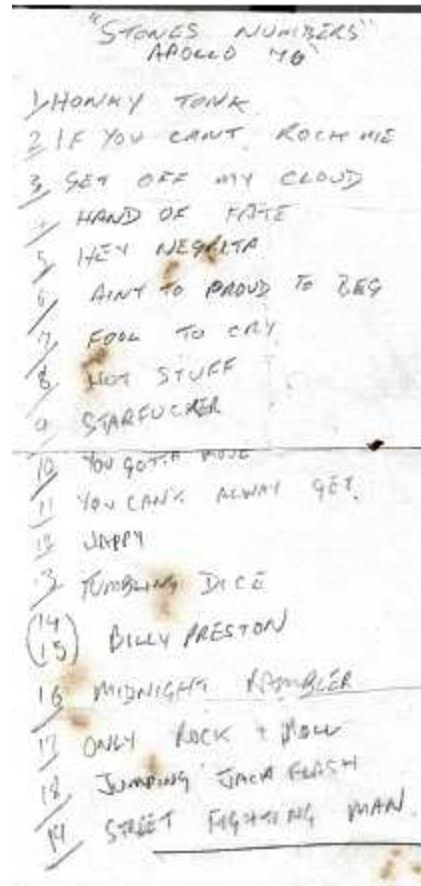 "STONES NUMBERS"
APOLLO '76
1 HONKY TONK
2 IF YOU CANT ROCK ME
3 GET OFF MY CLOUD
4 HAND OF FATE
5 HEY NEGRITA
6 AINT TO PROUD TO BEG
7 FOOL TO CRY
8 HOT STUFF
9 STARFUCKER
10 YOU GOTTA MOVE
11 YOU CAN'T ALWAY GET.
12 HAPPY
13 TUMBLING DICE
(14
15) BILLY PRESTON
16 MIDNIGHT RAMBLER
17 ONLY ROCK + ROLL
18 JUMPING JACK FLASH
19 STREET FIGHTING MAN.